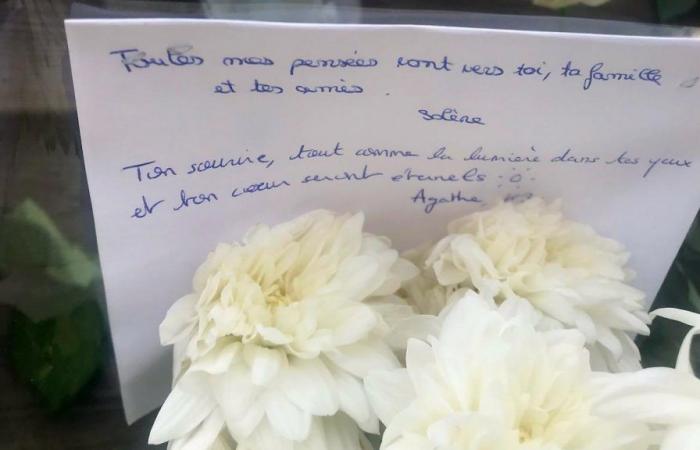 Toutes mes pensées vont vers toi, ta famille
et tes amies.
Solène
Ton sourire, tout comme la lumière dans tes yeux
et ton coeur seront éternels
Agathe